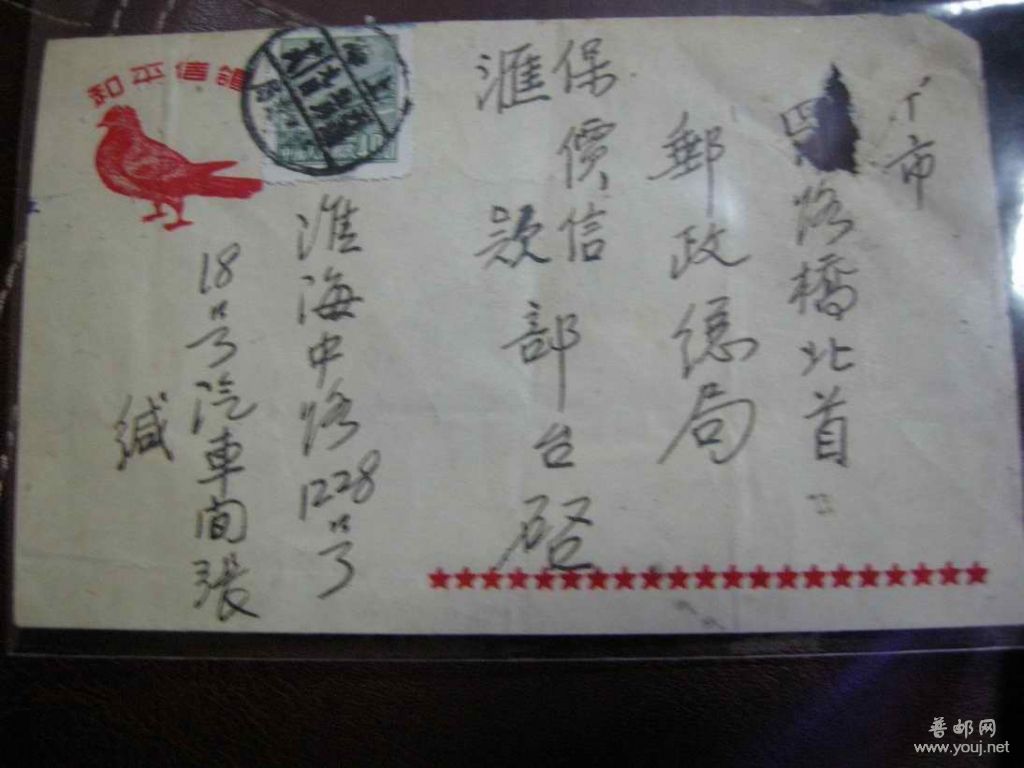 和平信鴿
市
四 路橋北首
郵政總局
保價信
滙款部台啓
淮海中路1228号
18号汽車间張
缄
普邮网
www.youj.net